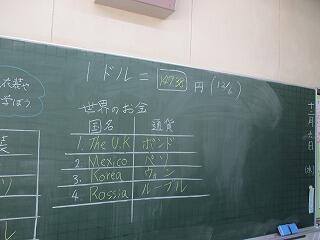 1ドル = 147.35 円 (12/6)
世界のお金
国名 通貨
1. The U.K ポンド
2. Mexico ペソ
3. Korea ウォン
4. Rossia ルーブル
学ぼう
十二月
日
(水)